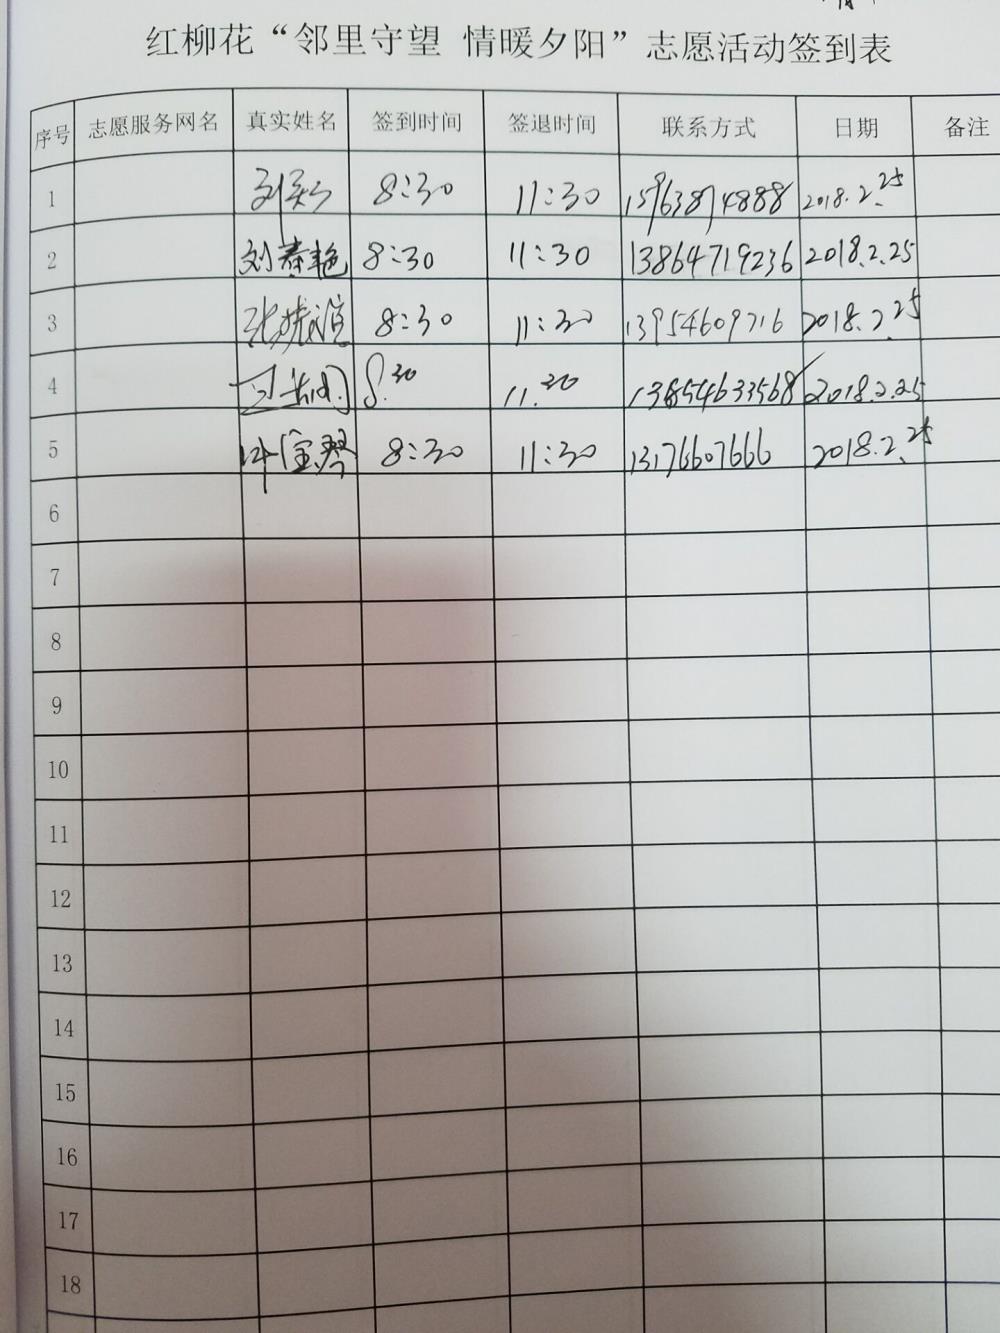 红柳花“邻里守望 情暖夕阳”志愿活动签到表
序号 志愿服务网名 真实姓名 签到时间 签退时间 联系方式 日期 备注
1 8:30 11:30 15963874888 2018.2.25
2 刘春艳 8:30 11:30 13864719236 2018.2.25
3 8:30 11:30 13954609716 2018.2.25
4 8.30 11.30 13854633568 2018.2.25
5 叶宝琴 8:30 11:30 13176607666 2018.2.25
6
7
8
9
10
11
12
13
14
15
16
17
18